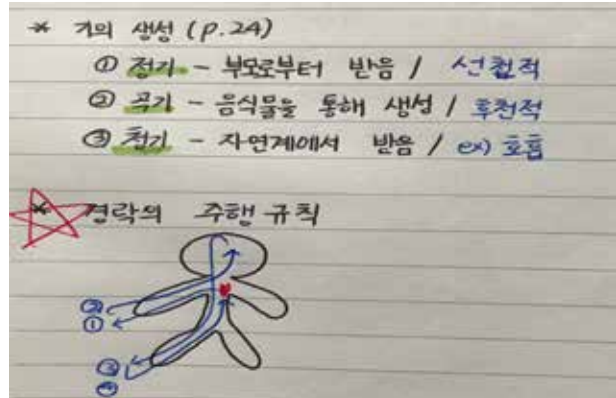 * 기의 생성 (p.24)
① 정기 - 부모로부터 받음 / 선천적
② 곡기 - 음식물을 통해 생성 / 후천적
③ 천기 - 자연계에서 받음 / ex) 호흡
* 경락의 주행 규칙
②
①
③
④